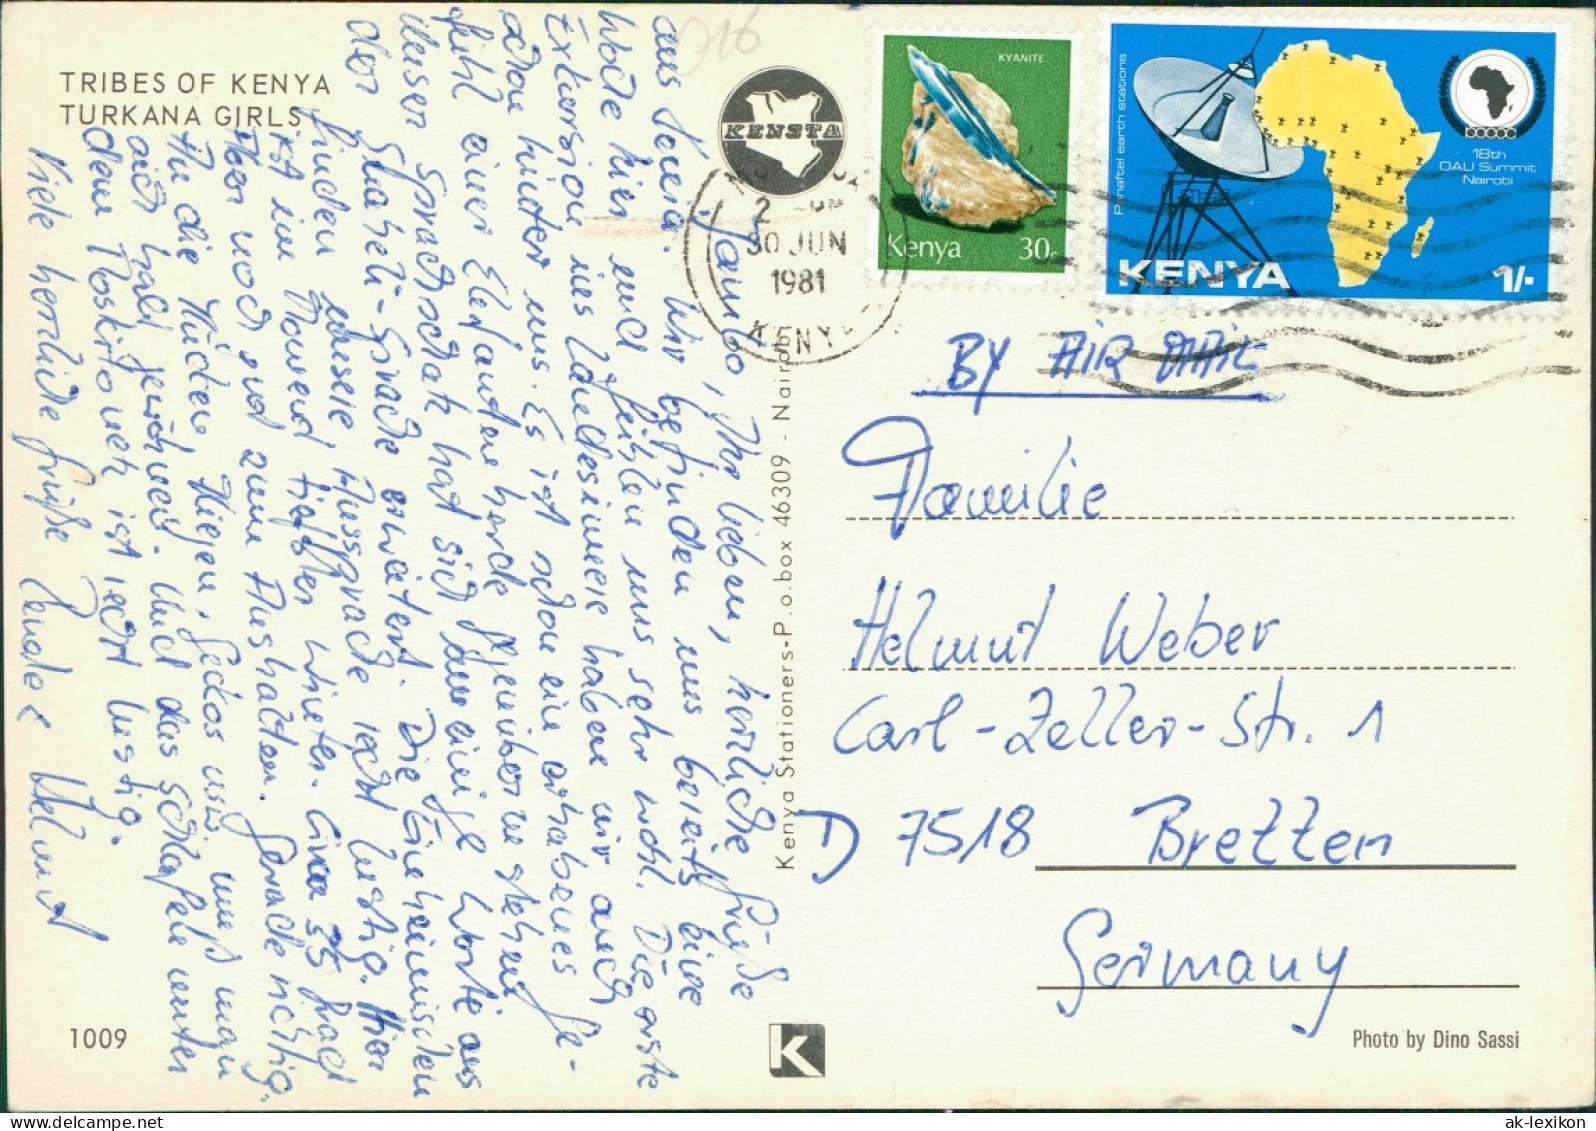 TRIBES OF KENYA
TURKANA GIRLS
KENSTA
KYANITE
Kenya 30c
Panaftel earth stations
18th
OAU Summit
Nairobi
KENYA 1/-
30 JUN
1981
KENYA
BY AIR MAIL
Familie
Helmut Weber
Carl-Zeller-Str. 1
D 7518 Bretten
Germany
Jambo, Ihr lieben, herzliche Grüße
aus Kenia. Wir befinden uns bereits eine
Woche hier und fühlen uns sehr wohl. Die erste
Exkursion ins Landesinnere haben wir auch
schon hinter uns. Es ist schon ein erhabenes Ge-
fühl einer Elefantenherde gegenüberzustehen
Unseren Sprachschatz hat sich um einige Worte aus
der Suaheli-Sprache erweitert. Die Einheimischen
finden unsere Aussprache recht lustig. Hier
ist im Moment tiefster Winter. Circa 35 Grad
Aber noch gut zum Aushalten. Gerade richtig.
An die Mücken, Fliegen, Geckos usw. muß man
sich halt gewöhnen. Und das Schlafen unter
dem Moskitonetz ist recht lustig.
Viele herzliche Grüße Renate & Helmut
Kenya Stationers-P.o.box 46309 - Nairobi
1009
K
Photo by Dino Sassi
ak-lexikon.de